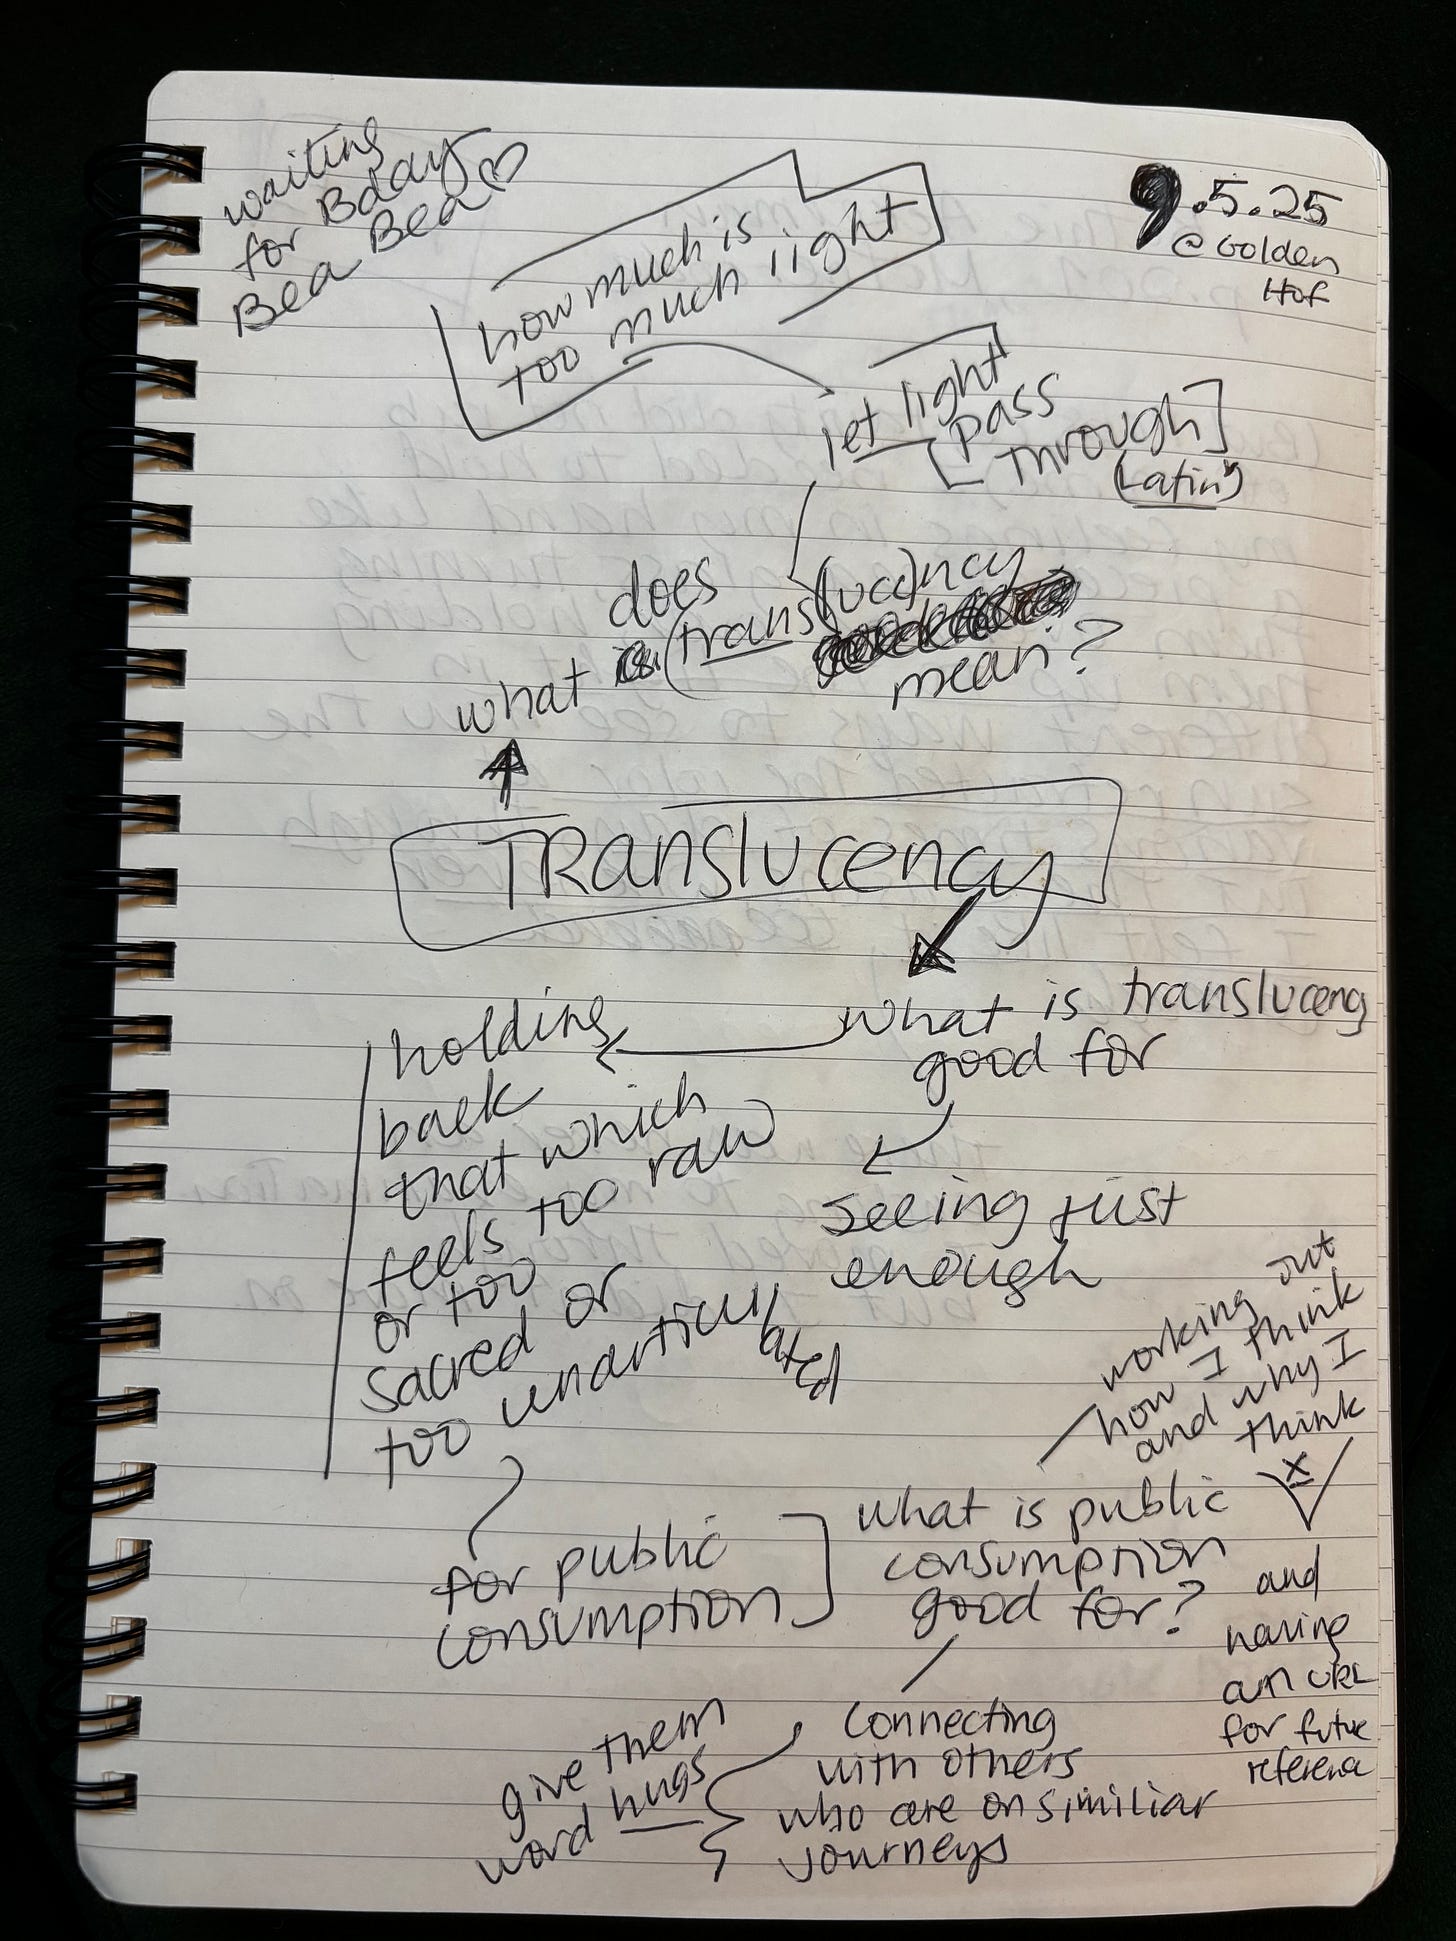 waiting
for Bday
Bea Bea♡
9.5.25
@ Golden
Hof
how much is
too much light
let light
pass
through
(Latin)
does
what (trans(luce)ncy
mean?
TRANSLUCENCY
what is translucency
good for
holding
back
that which
feels too raw
or too
sacred or
too unarticulated
seeing just
enough
for public
consumption
what is public
consumption
good for?
working out
how I think
and why I
think
x
and
having
an URL
for future
reference
connecting
with others
who are on similiar
journeys
give them
word hugs